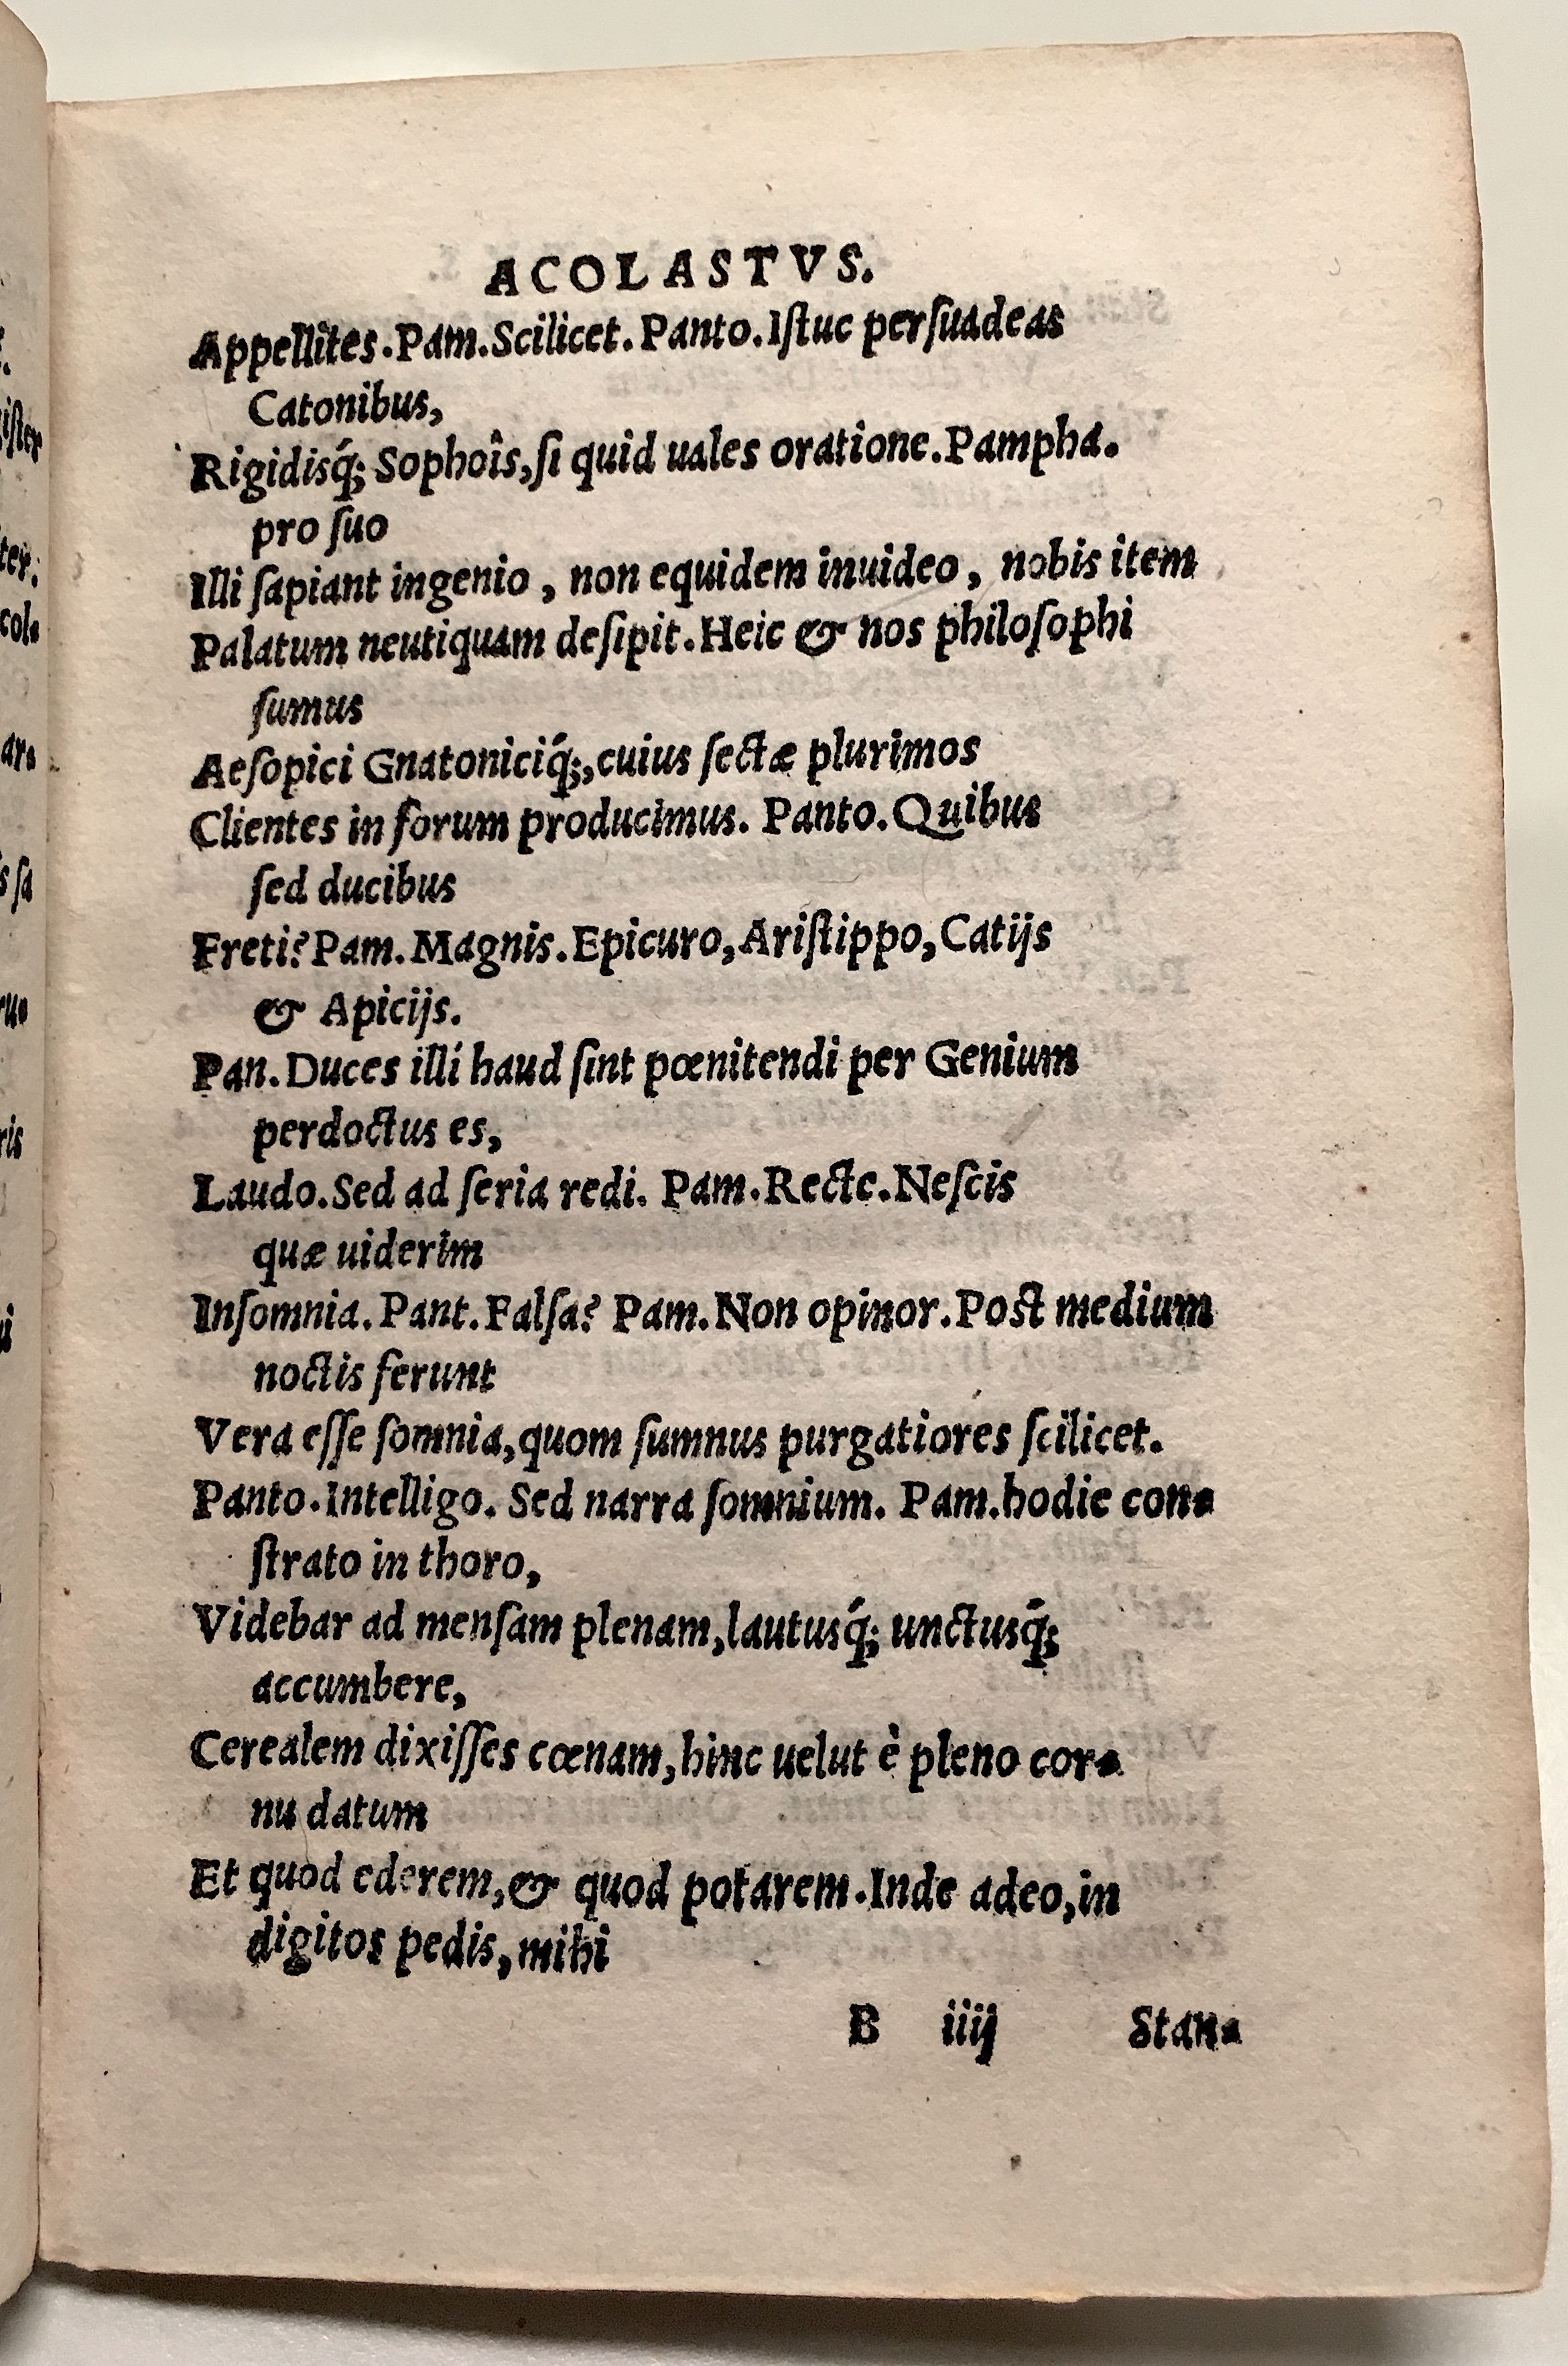 ACOLASTVS.
Appellites.Pam.Scilicet.Panto.Iſtuc perſuadeas
Catonibus,
Rigidisq́; Sophoîs,ſi quid uales oratione.Pampha.
pro ſuo
Illi ſapiant ingenio , non equidem inuideo , nobis item
Palatum neutiquam deſipit.Heic & nos philoſophi
ſumus
Aeſopici Gnatoniciq́;,cuius ſectæ plurimos
Clientes in forum producimus. Panto.Quibus
ſed ducibus
Freti? Pam.Magnis.Epicuro,Ariſtippo,Catijs
& Apicijs.
Pan.Duces illi haud ſint pœnitendi per Genium
perdoctus es,
Laudo.Sed ad ſeria redi. Pam.Recte.Neſcis
quæ uiderim
Inſomnia.Pant.Falſa? Pam.Non opinor.Post medium
noctis ferunt
Vera eſſe ſomnia,quom ſumnus purgatiores ſcilicet.
Panto.Intelligo. Sed narra ſomnium. Pam.hodie con-
ſtrato in thoro,
Videbar ad menſam plenam,lautusq́; unctusq́;
accumbere,
Cerealem dixiſſes cœnam,hinc uelut è pleno cor-
nu datum
Et quod ederem,& quod potarem.Inde adeo,in
digitos pedis,mihi
B iiij Stan-